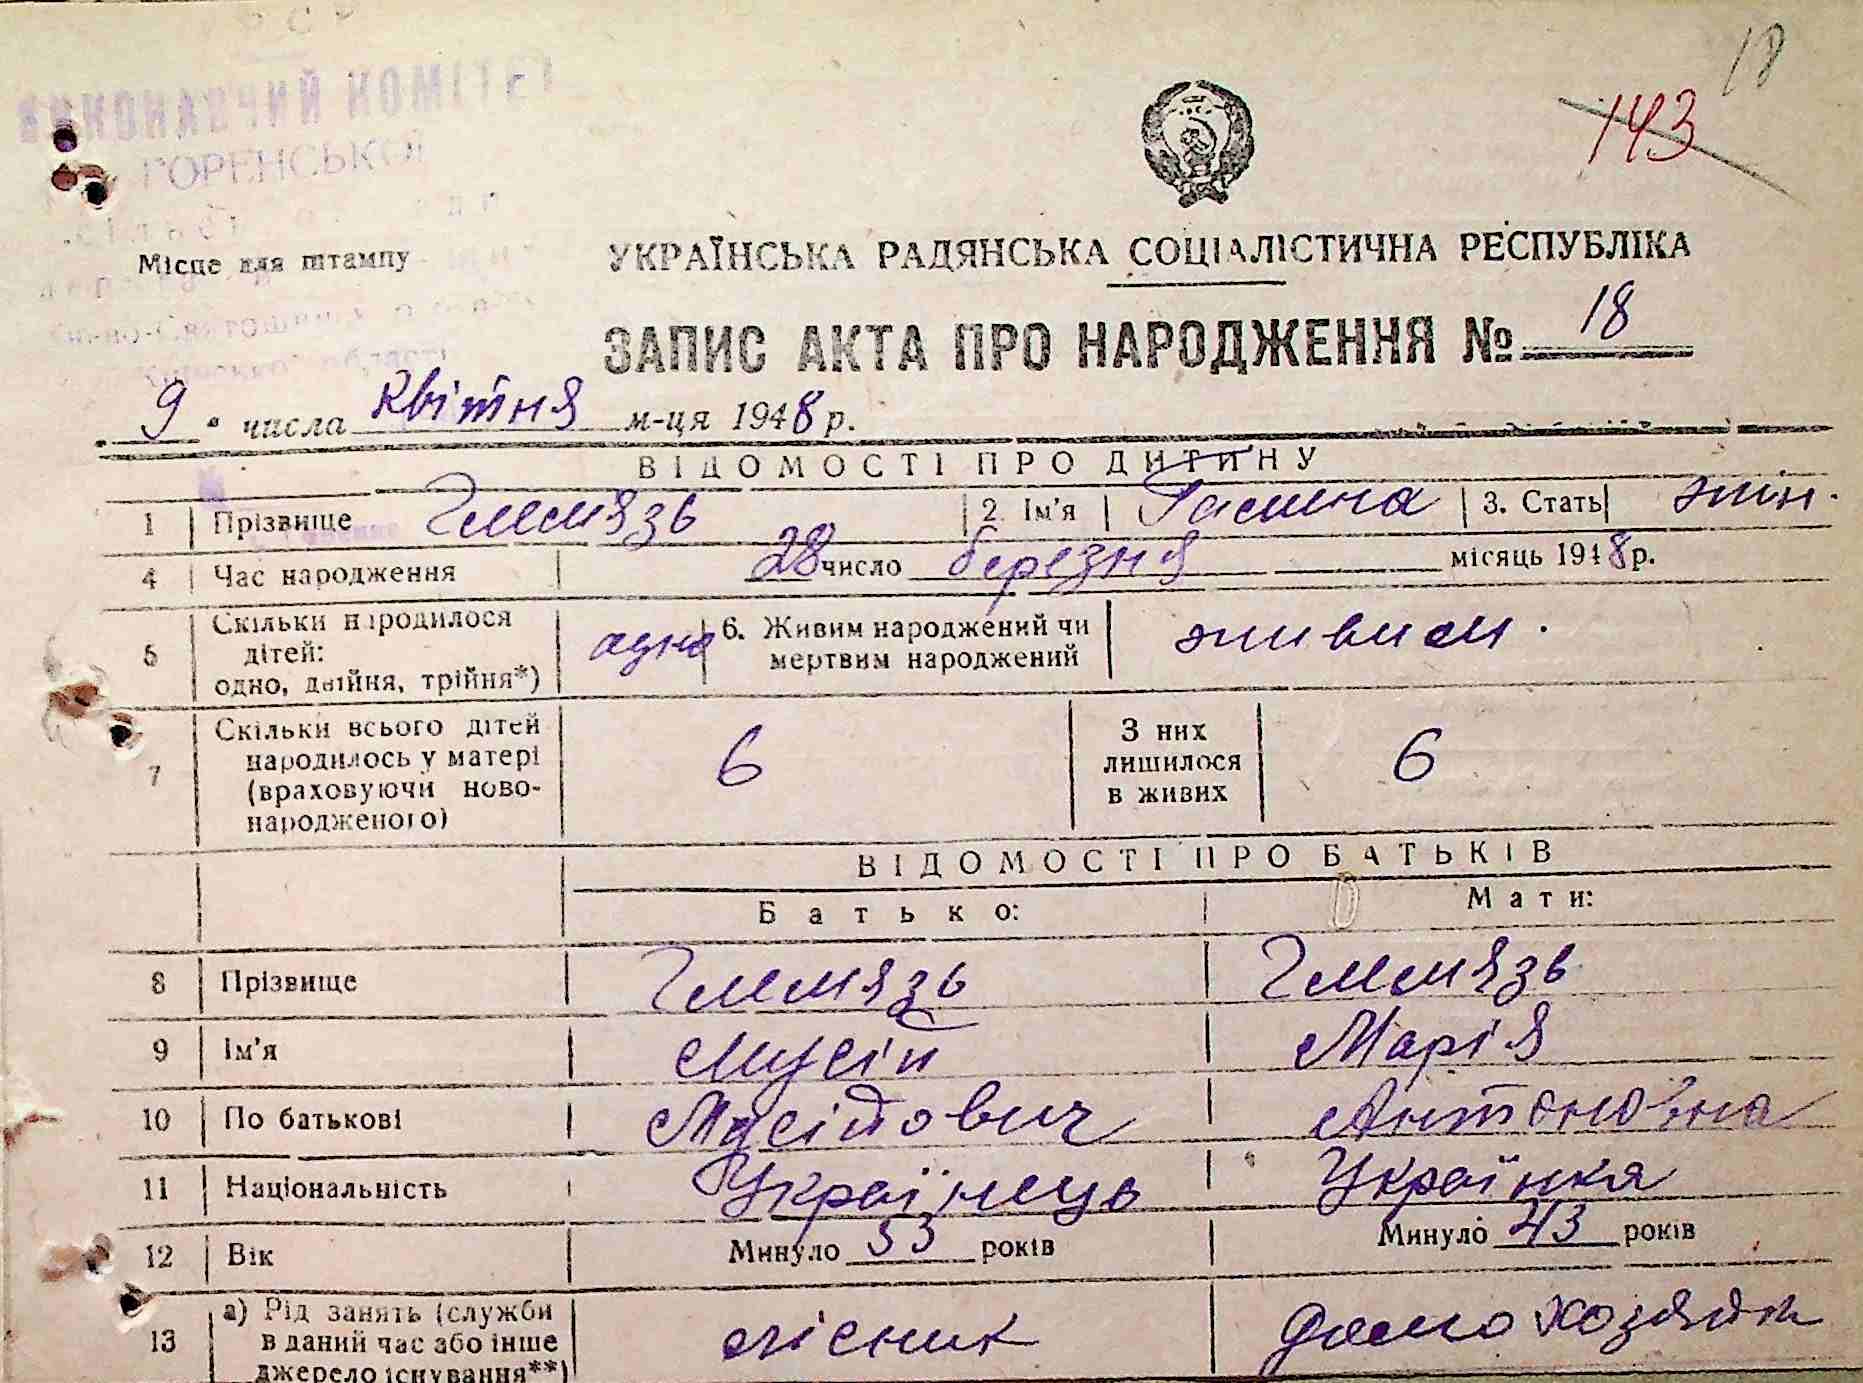 18
143
ВИКОНАВЧИЙ КОМІТЕТ
ГОРЕНСЬКОЇ
Місце для штампу
УКРАЇНСЬКА РАДЯНСЬКА СОЦІАЛІСТИЧНА РЕСПУБЛІКА
ЗАПИС АКТА ПРО НАРОДЖЕННЯ № 18
9 числа квітня м-ця 1948 р.
ВІДОМОСТІ ПРО ДИТИНУ
1 Прізвище Глемязь 2. Ім'я Галина 3. Стать жін.
4 Час народження 28 число березня місяць 1948 р.
5 Скільки народилося дітей: одно, двійня, трійня*) одно 6. Живим народжений чи мертвим народжений живим.
7 Скільки всього дітей народилось у матері (враховуючи ново-народженого) 6 З них лишилося в живих 6
ВІДОМОСТІ ПРО БАТЬКІВ
Батько: Мати:
8 Прізвище Глемязь Глемязь
9 Ім'я Мусій Марія
10 По батькові Мусійович Антонівна
11 Національність Українець Українка
12 Вік Минуло 53 років Минуло 43 років
13 а) Рід занять (служби в даний час або інше джерело існування**) лісник домохозяйк